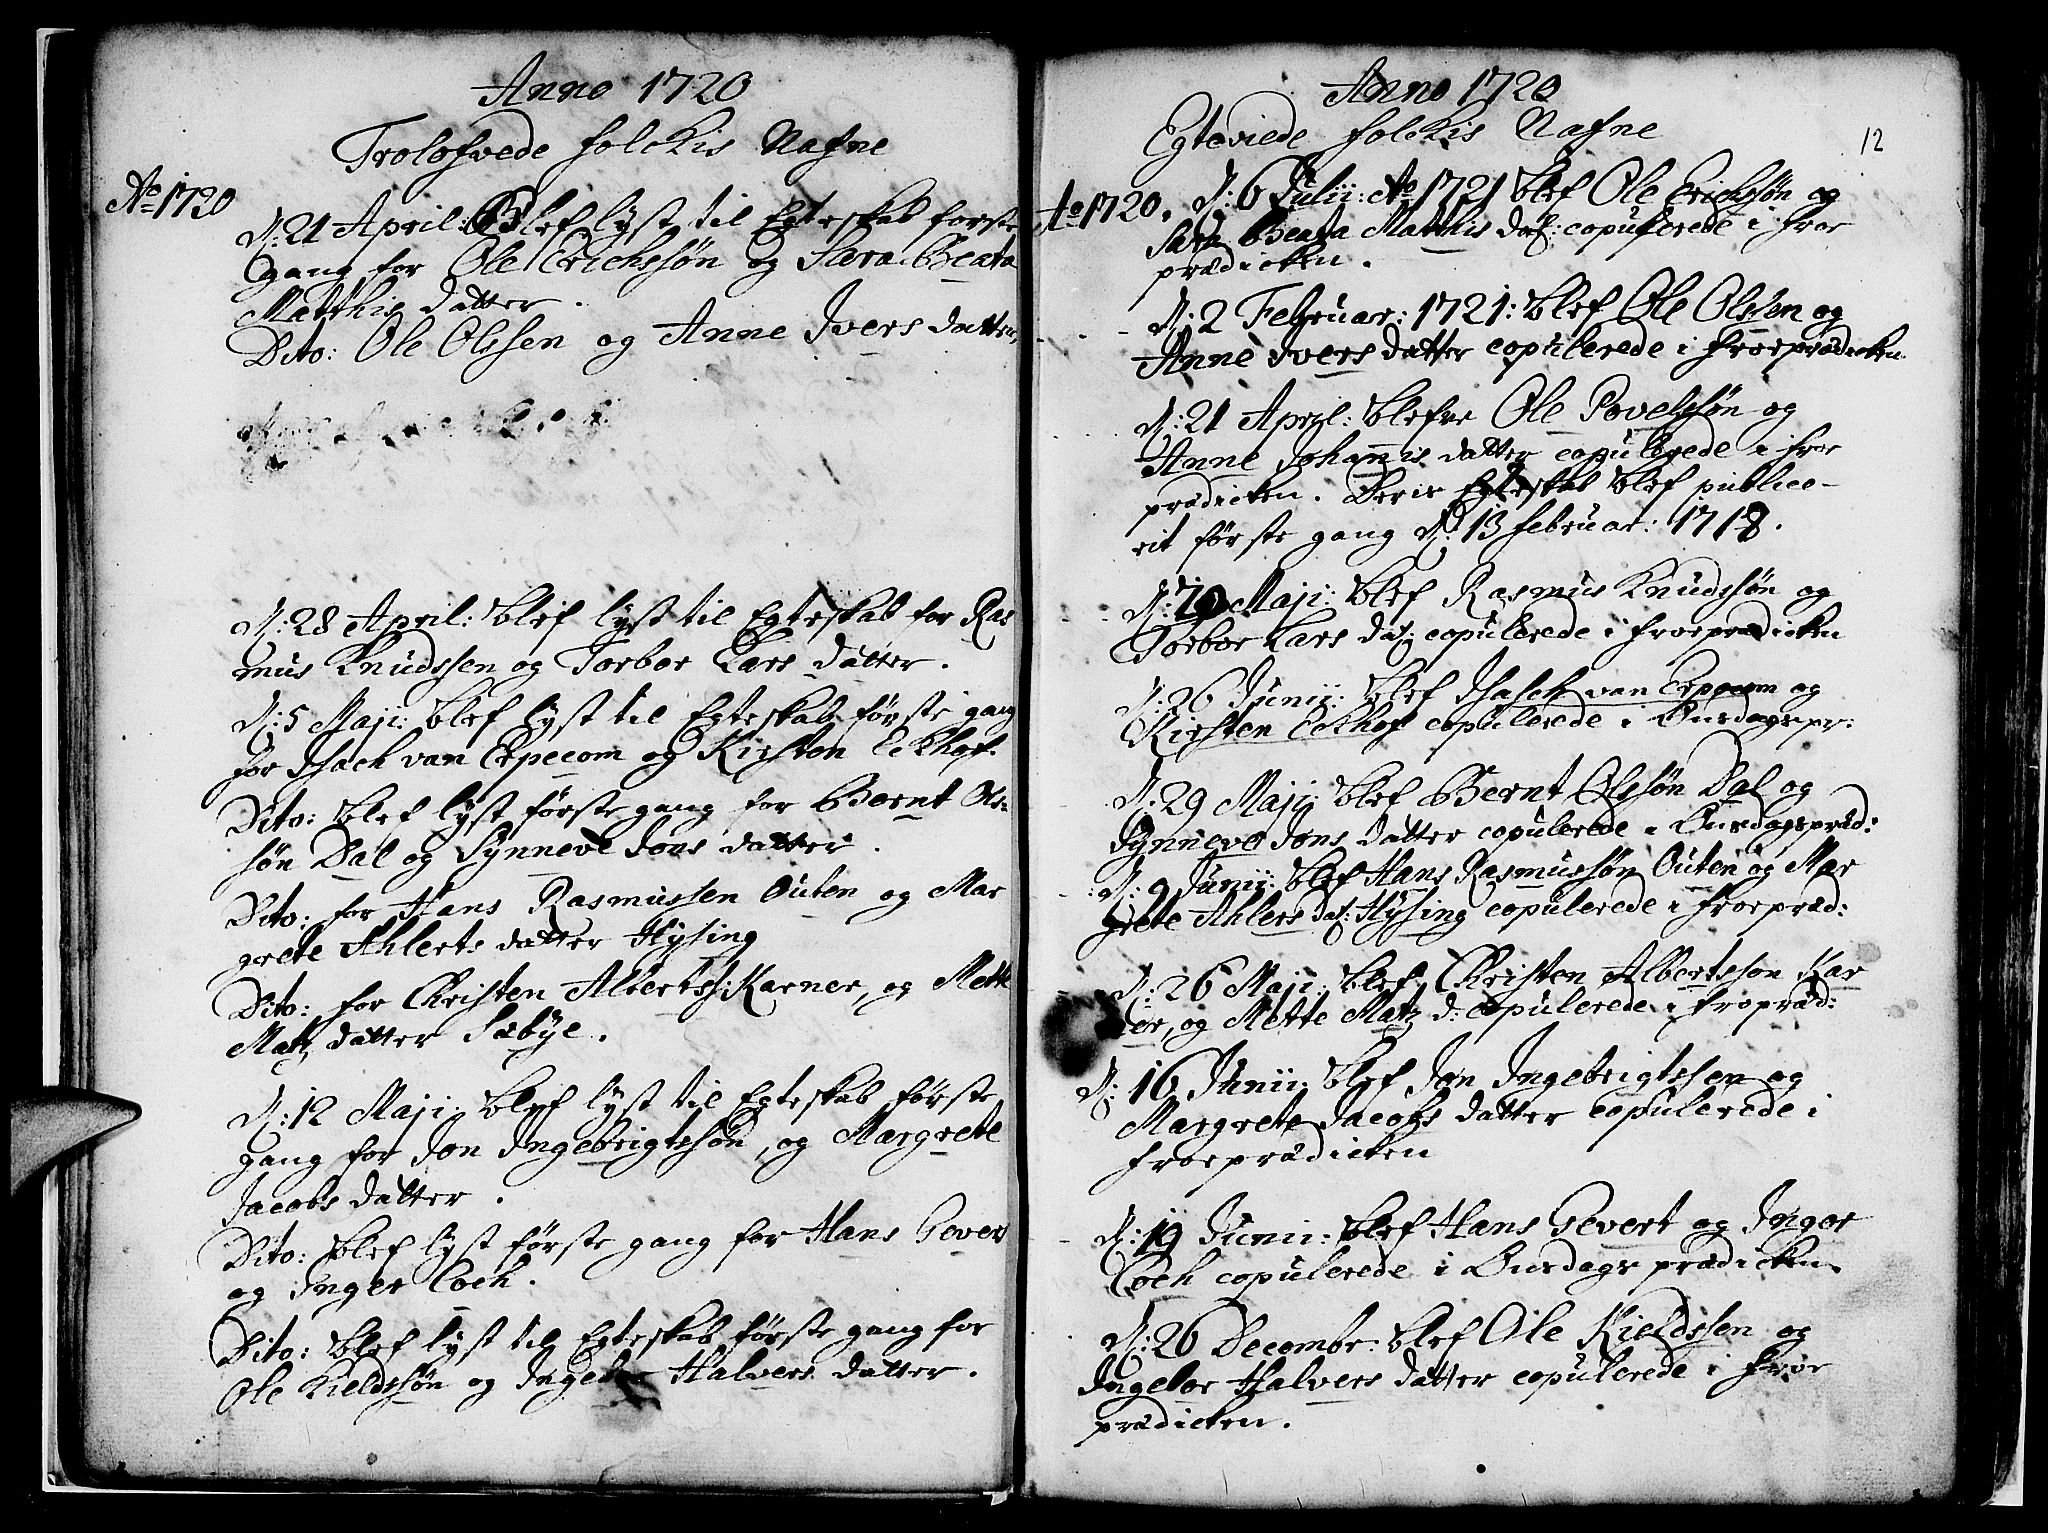 Anno 1720
Trolofvede folckis Nafne
Ao 1720
D: 21 April: Blef lyst til Egteskab første
gang for Ole Erichssøn og Sara Beata
Matthis datter.
Dito: Ole Olssen og Anne Ivers datter,
D: 28 April: blef lyst til Egteskab for Ras
mus Knudssen og Torbor Lars datter.
D: 5 Maji: blef lyst til Egteskab første gang
for Isach van Erpecom og Kirsten Eckhof.
Dito: blef lyst første gang for Bernt Ols-
søn Dal og Synneve Jons datter.
Dito: for Hans Rasmussen Outen og Mar
grete Ahlerts datter Hysing
Dito: for Christen Albertss: Karner, og Mette
Matz datter Sæbye.
D: 12 Maji: blef lyst til Egteskab første
gang for Jon Ingebrigtssøn, og Margrete
Jacobs datter.
Dito: blef lyst første gang for Hans Gevert
og Inger Coch.
Dito: blef lyst til Egteskab første gang for
Ole Kieldssøn og Ingebor Halvers datter.
Anno 1720
Egteviede folckis Nafne
12
Ao 1720. D: 6 Julii: Ao 1721 blef Ole Erichssøn og
Sara Beata Matthis dat: copulerede i froe
prædicken.
D: 2 Februar: 1721: blef Ole Olssen og
Anne Ivers datter copulerede i froeprædicken
D: 21 April: blefve Ole Povelssøn og
Anne Johannis datter copulerede i froe
prædicken. Deris Egteskab blef public-
rit første gang D: 13 februar: 1718.
D: Maji: blef Rasmus Knudssøn og
Torbor Lars dat: copulerede i froeprædicken
D: 26 Junii: blef Isach van Erpecom og
Kirsten Eckhof copulerede i Onsdagspr:
D: 29 Maji: blef Bernt Olssøn Dal og
Synneve Jons datter copulerede i Onsdagspræd:
D: 9 Junii: blef Hans Rasmussøn Outen og Mar
grete Ahlers dat: Hysing copulerede i froepræd:
D: 26 Maji: blef Christen Albertsson Kar
ner, og Mette Matz d: copulerede i fropræd:
D: 16 Junii: blef Jon Ingebrigtssen og
Margrete Jacobs datter copulerede i
froeprædicken
D: 19 Junii: blef Hans Gevert og Inger
Coch copulerede i Onsdags prædicken.
D: 26 Decembr: blef Ole Kieldssen og
Ingebor Halvers datter copulerede i froe
prædicken.